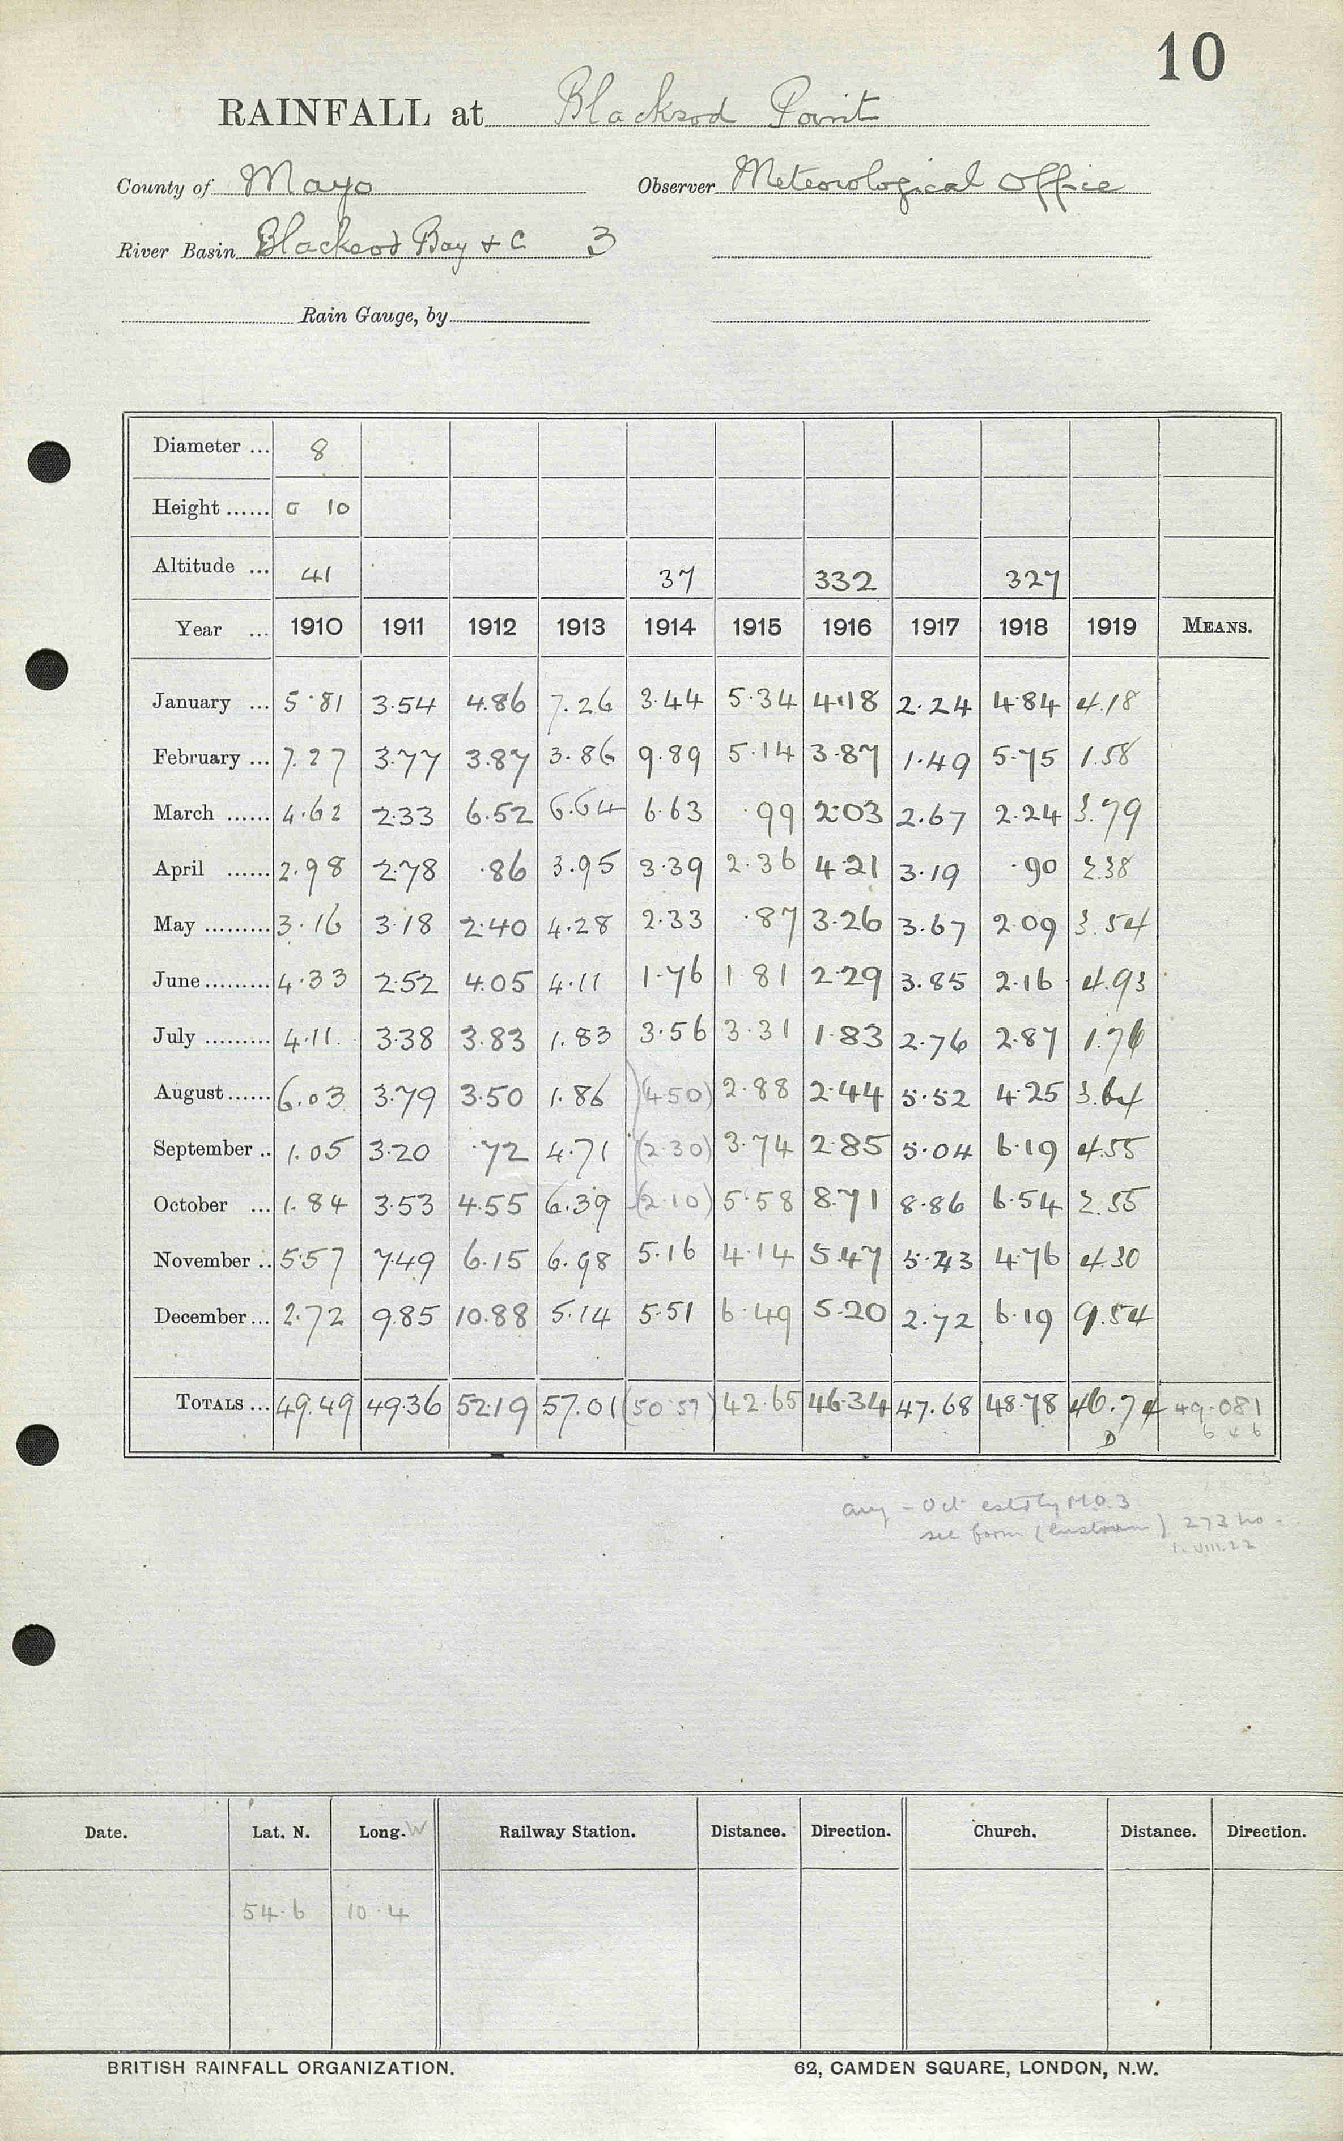 10
RAINFALL at Blacksod Point
County of Mayo Observer Meteorological Office
River Basin Blacksod Bay & C 3
Rain Gauge, by
Diameter ... 8
Height ...... 0 10
Altitude ... 41 37 332 327
Year ... 1910 1911 1912 1913 1914 1915 1916 1917 1918 1919 MEANS.
January ... 5·81 3·54 4·86 7·26 3·44 5·34 4·18 2·24 4·84 4·18
February ... 7·27 3·77 3·87 3·86 9·89 5·14 3·87 1·49 5·75 1·58
March ...... 4·62 2·33 6·52 6·64 6·63 ·99 2·03 2·67 2·24 3·79
April ...... 2·98 2·78 ·86 3·95 3·39 2·36 4·21 3·19 ·90 2·38
May ......... 3·16 3·18 2·40 4·28 2·33 ·87 3·26 3·67 2·09 3·54
June ......... 4·33 2·52 4·05 4·11 1·76 1·81 2·29 3·85 2·16 4·93
July ......... 4·11 3·38 3·83 1·83 3·56 3·31 1·83 2·76 2·87 1·76
August ...... 6·03 3·79 3·50 1·86 (4·50) 2·88 2·44 5·52 4·25 3·64
September .. 1·05 3·20 ·72 4·71 (2·30) 3·74 2·85 5·04 6·19 4·55
October ... 1·84 3·53 4·55 6·39 (2·10) 5·58 8·71 8·86 6·54 2·55
November .. 5·57 7·49 6·15 6·98 5·16 4·14 5·47 5·43 4·76 4·30
December ... 2·72 9·85 10·88 5·14 5·51 6·49 5·20 2·72 6·19 9·54
TOTALS ... 49·49 49·36 52·19 57·01 (50·57) 42·65 46·34 47·68 48·78 46·74 49·081
D 6 4 6
Aug - Oct estd by M.O.3
see form 273 no.
1.VIII.22
Date. Lat. N. Long. W Railway Station. Distance. Direction. Church. Distance. Direction.
54·6 10·4
BRITISH RAINFALL ORGANIZATION. 62, CAMDEN SQUARE, LONDON, N.W.